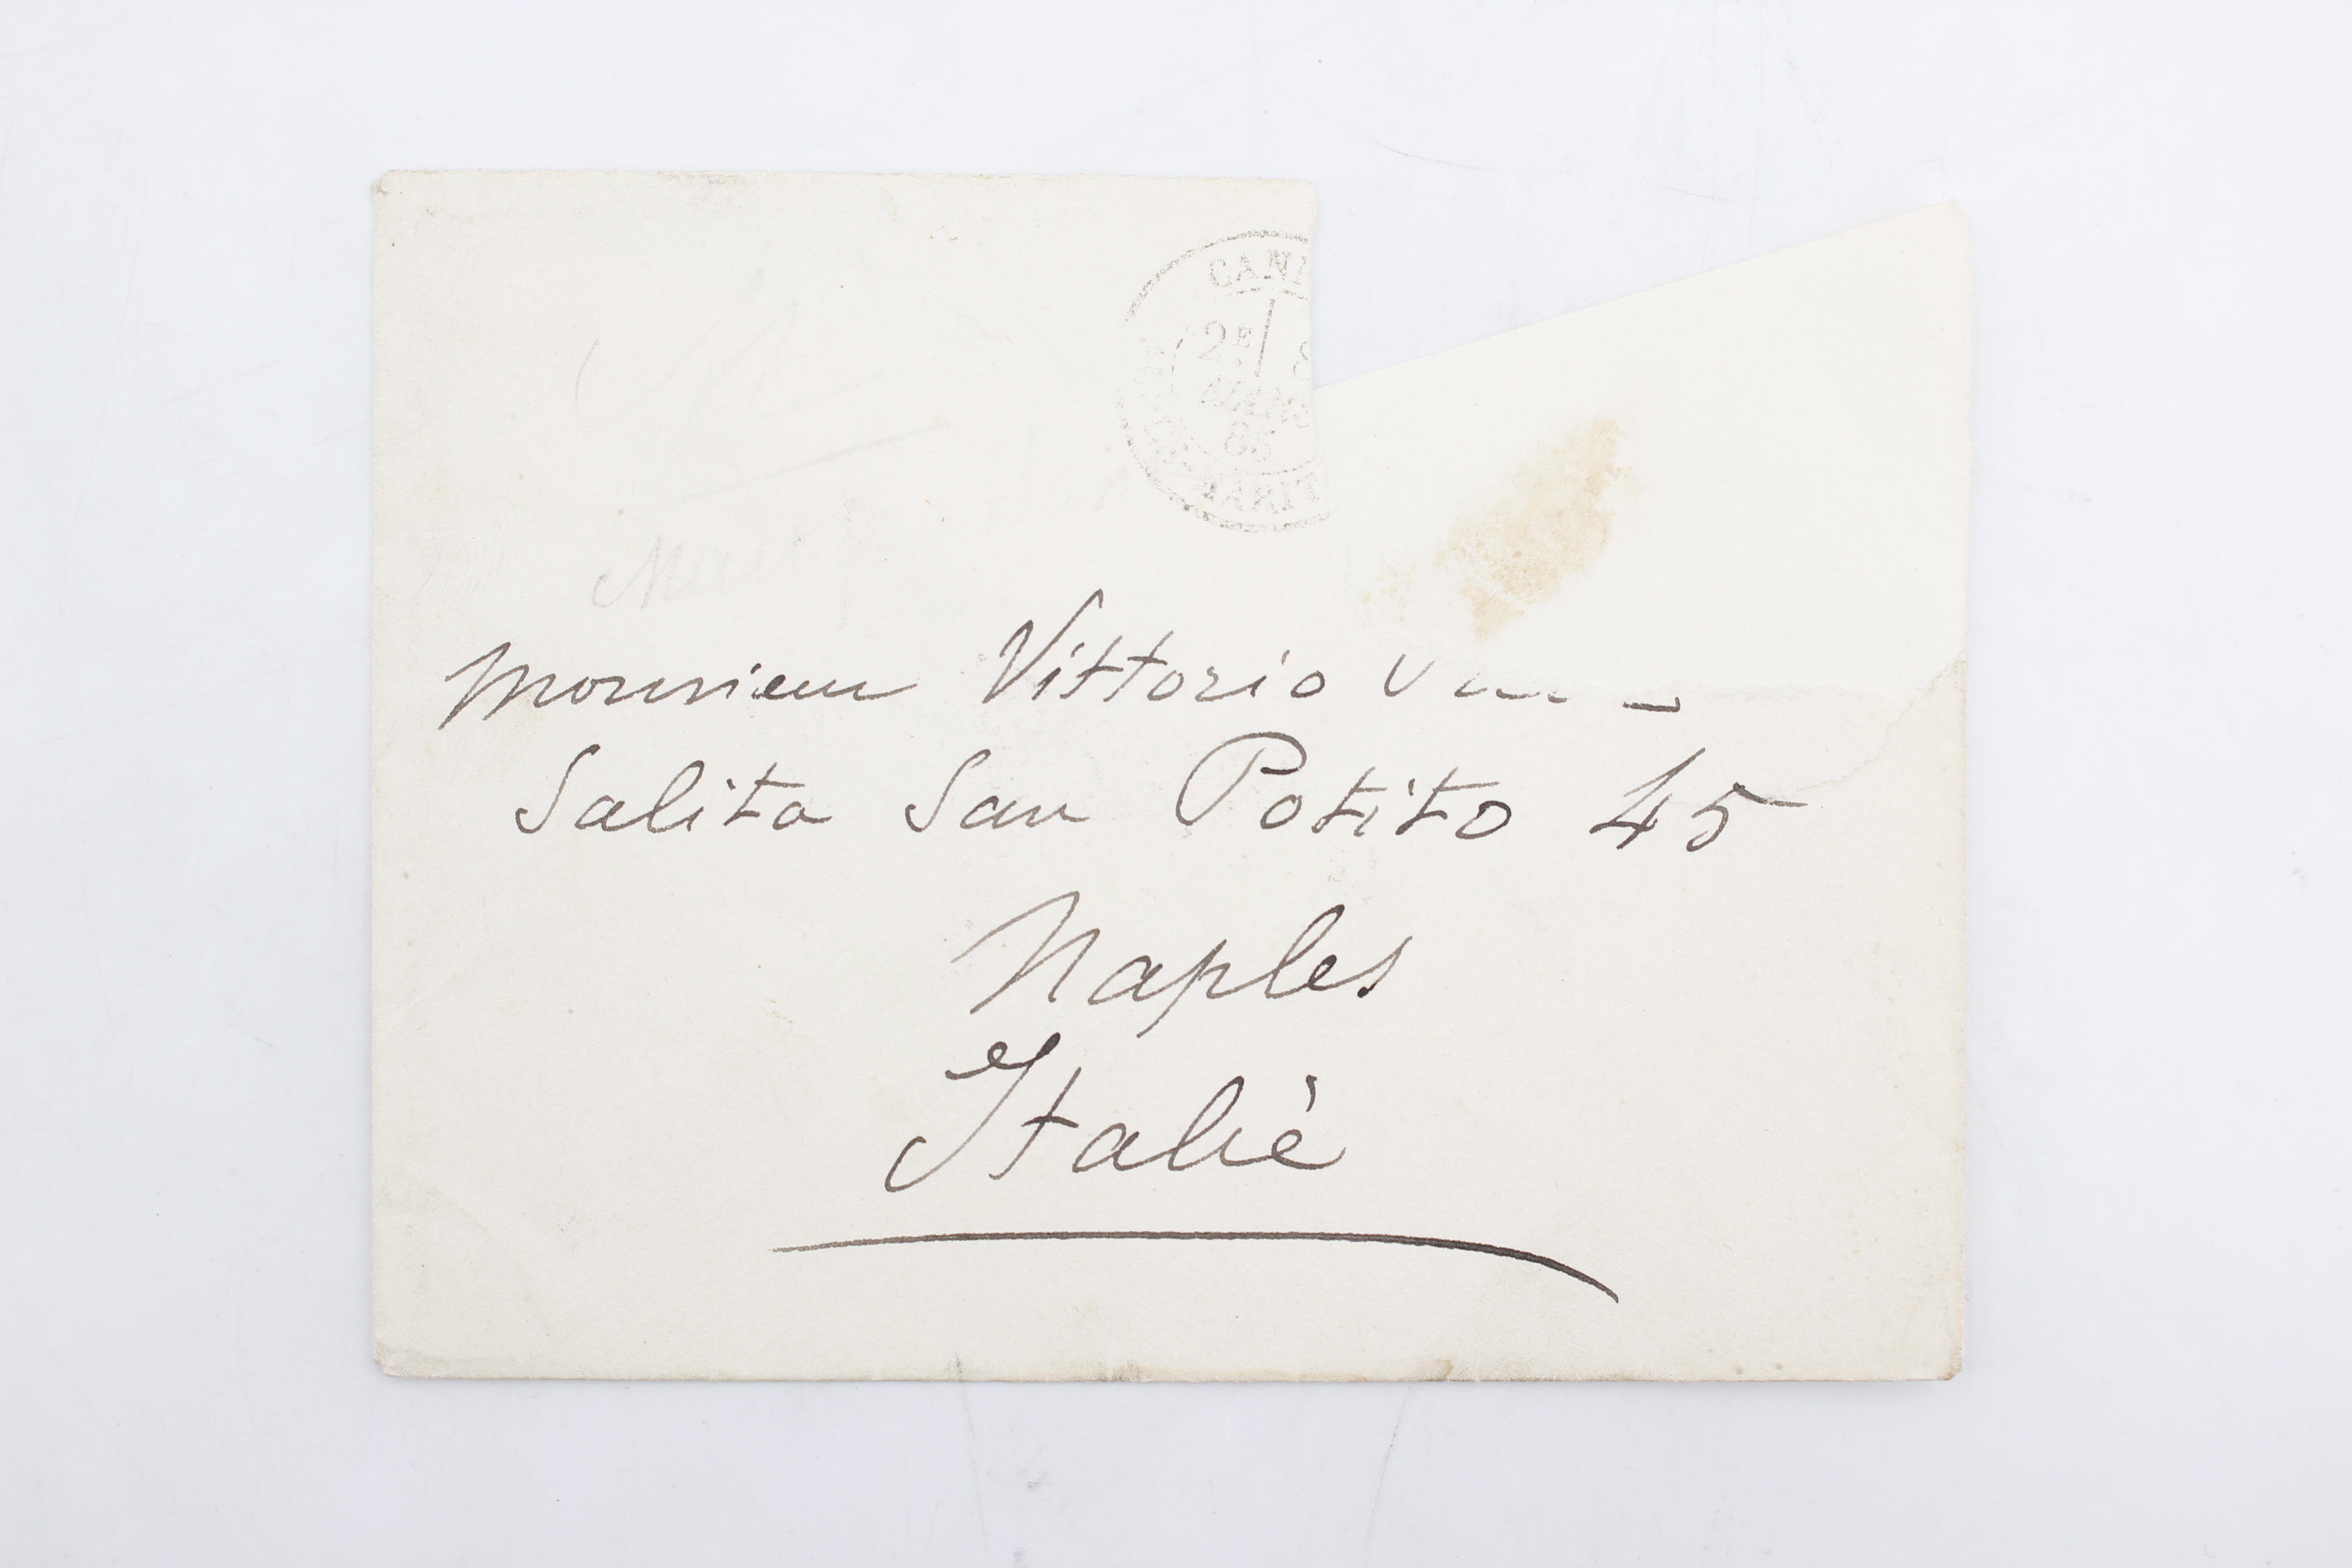 CANN
2E 8
MARS
85
MARIT
Monsieur Vittorio
Salita San Potito 45
Naples
Italie